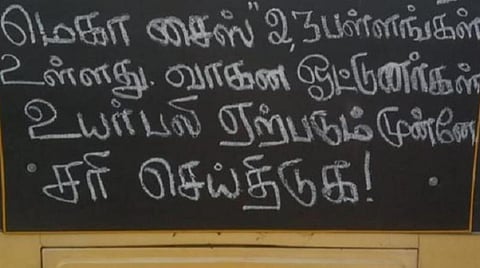 மெகா சைஸ்" 2,3 பள்ளங்கள்
உள்ளது. வாகன ஓட்டுனர்கள்
உயர்பலி ஏற்படும் முன்னே
சரி செய்திடுக!